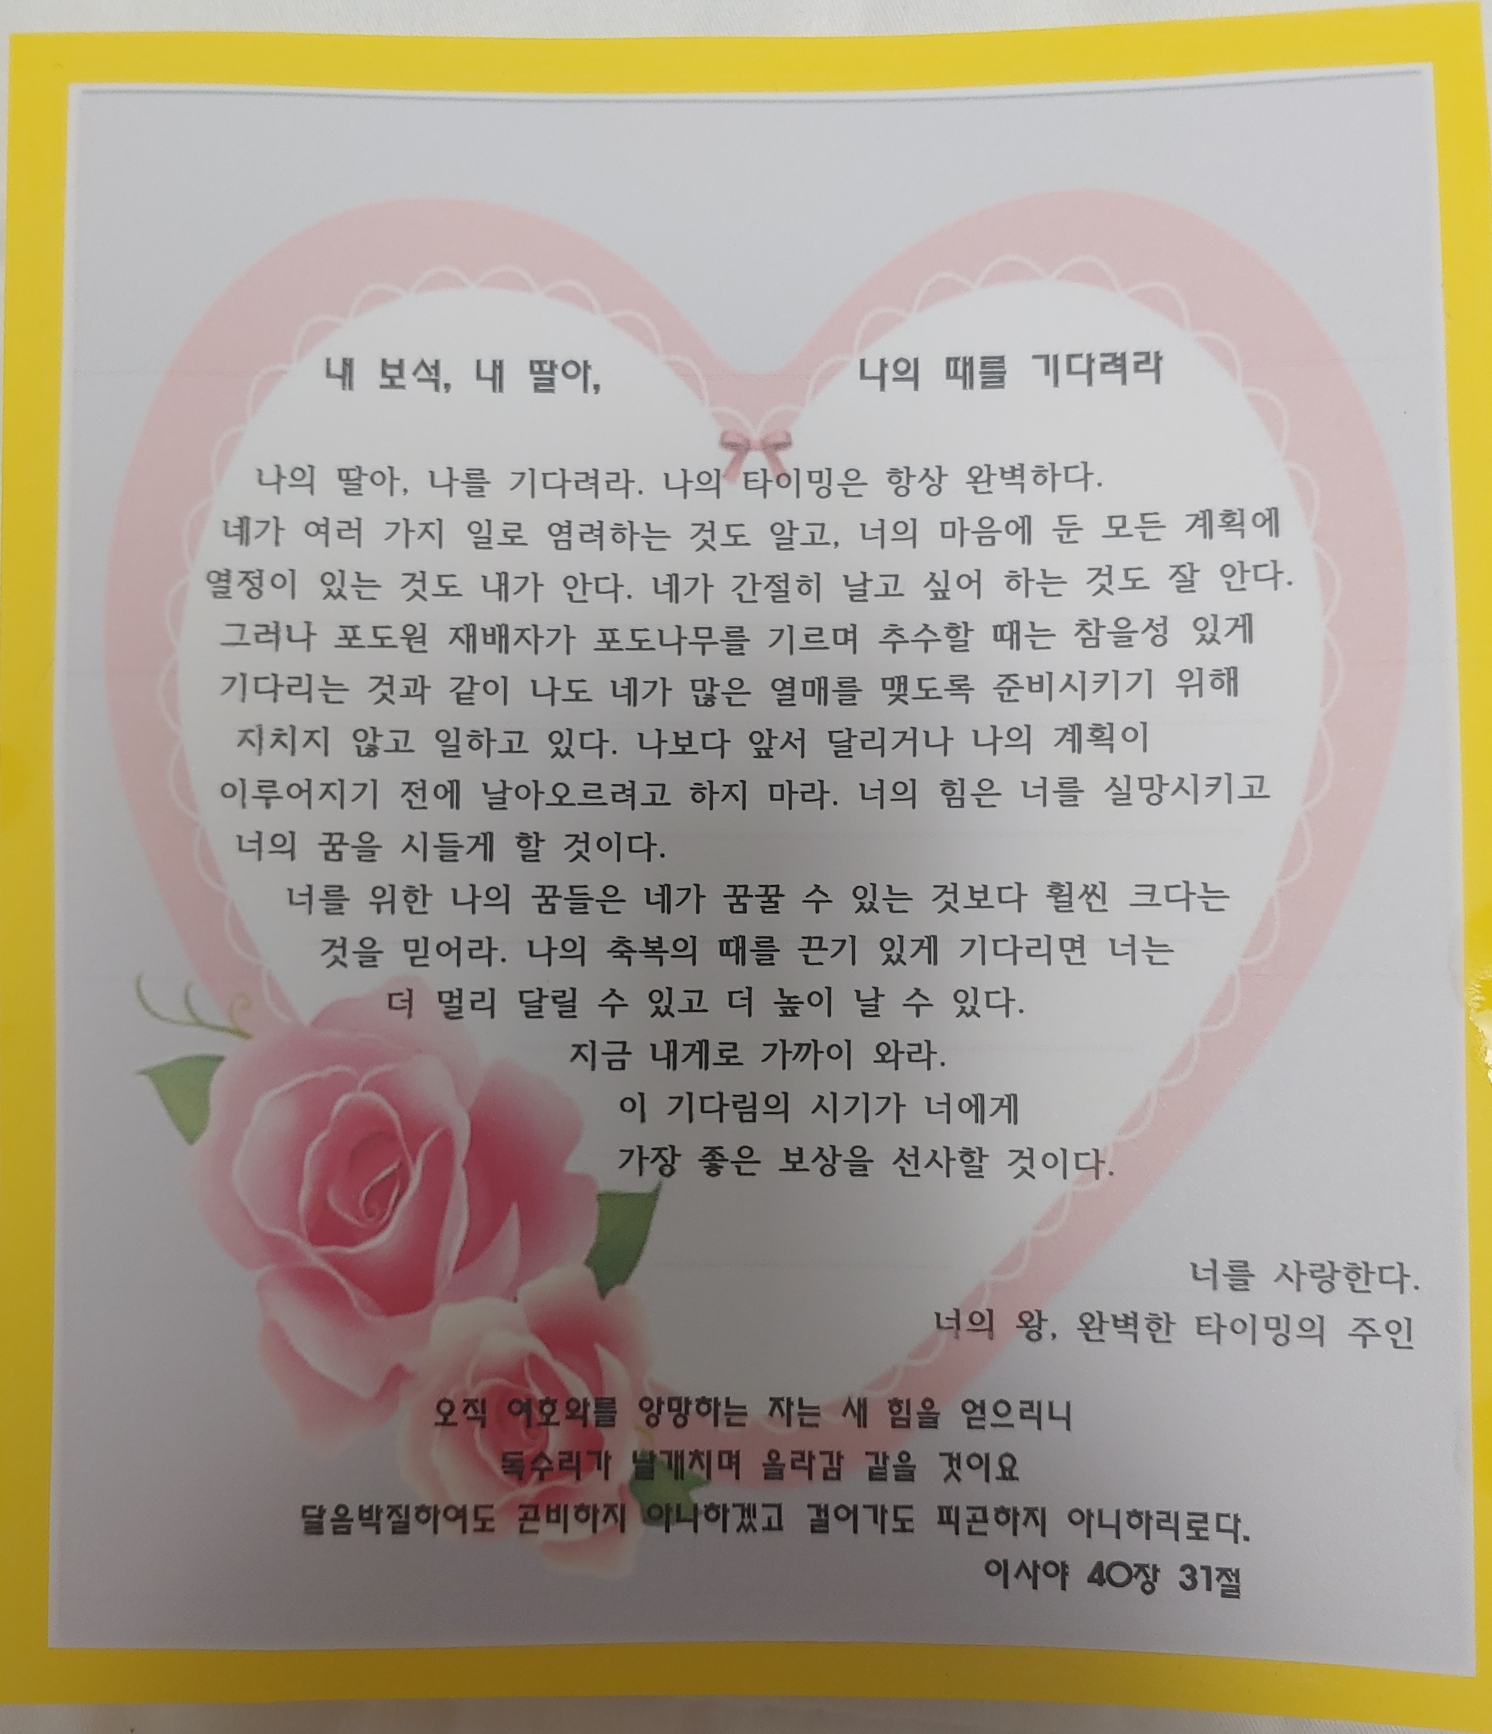 내 보석, 내 딸아, 나의 때를 기다려라
나의 딸아, 나를 기다려라. 나의 타이밍은 항상 완벽하다.
네가 여러 가지 일로 염려하는 것도 알고, 너의 마음에 둔 모든 계획에
열정이 있는 것도 내가 안다. 네가 간절히 날고 싶어 하는 것도 잘 안다.
그러나 포도원 재배자가 포도나무를 기르며 추수할 때는 참을성 있게
기다리는 것과 같이 나도 네가 많은 열매를 맺도록 준비시키기 위해
지치지 않고 일하고 있다. 나보다 앞서 달리거나 나의 계획이
이루어지기 전에 날아오르려고 하지 마라. 너의 힘은 너를 실망시키고
너의 꿈을 시들게 할 것이다.
너를 위한 나의 꿈들은 네가 꿈꿀 수 있는 것보다 훨씬 크다는
것을 믿어라. 나의 축복의 때를 끈기 있게 기다리면 너는
더 멀리 달릴 수 있고 더 높이 날 수 있다.
지금 내게로 가까이 와라.
이 기다림의 시기가 너에게
가장 좋은 보상을 선사할 것이다.
너를 사랑한다.
너의 왕, 완벽한 타이밍의 주인
오직 여호와를 앙망하는 자는 새 힘을 얻으리니
독수리가 날개치며 올라감 같을 것이요
달음박질하여도 곤비하지 아니하겠고 걸어가도 피곤하지 아니하리로다.
이사야 40장 31절